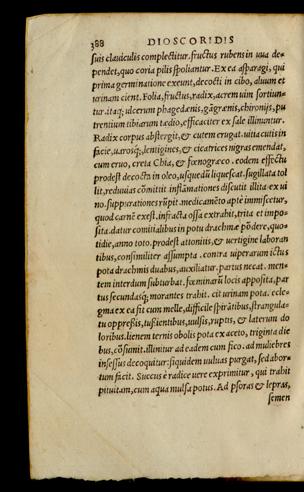 388 DIOSCORIDIS
suis clauiculis complectitur. fructus rubens in uua de-
pendet, quo coria pilis spoliantur. Ex ea asparagi, qui
prima germinatione exeunt, decocti in cibo, aluum et
urinam cient. Folia, fructus, radix, acrem uim sortiun-
tur. itaq; ulcerum phagedænis, gāgrænis, chironijs, pu
trentium tibiarum tædio, efficaciter ex sale illinuntur.
Radix corpus abstergit, & cutem erugat. uitia cutis in
facie, uarosq;, lentigines, & cicatrices nigras emendat,
cum eruo, creta Chia, & fœnogræco. eodem effectu
prodest decocta in oleo, usquedū liquescat. sugillata tol
lit, reduuias cōmitit inflāmationes discutit illita ex ui
no. suppurationes rūpit. medicamēto aptè immiscetur,
quod carnē exest. infracta ossa extrahit, trita et impo-
sita. datur comitialibus in potu drachmæ pōdere, quo-
tidie, anno toto. prodest attonitis, & uertigine laboran
tibus, consimiliter assumpta. contra uiperarum ictus
pota drachmis duabus, auxiliatur. partus necat. men-
tem interdum subturbat. fœminarū locis apposita, par
tus secundasq; morantes trahit. cit urinam pota. ecle-
gma ex ea fit cum melle, difficile spirātibus, strangula-
tu oppressis, tussientibus, uulsis, ruptis, & laterum do
loribus. lienem ternis obolis pota ex aceto, triginta die
bus, cōsumit. illinitur ad eadem cum fico. ad muliebres
insessus decoquitur: siquidem uuluas purgat, sed abor-
tum facit. Succus è radice uere exprimitur, qui trahit
pituitam, cum aqua mulsa potus. Ad psoras & lepras,
semen